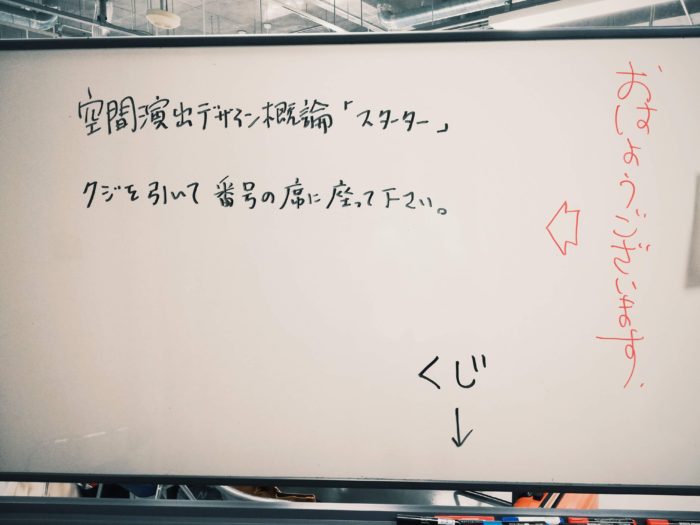 おはようございます
空間演出デザイン概論「スターター」
クジを引いて番号の席に座って下さい。
くじ